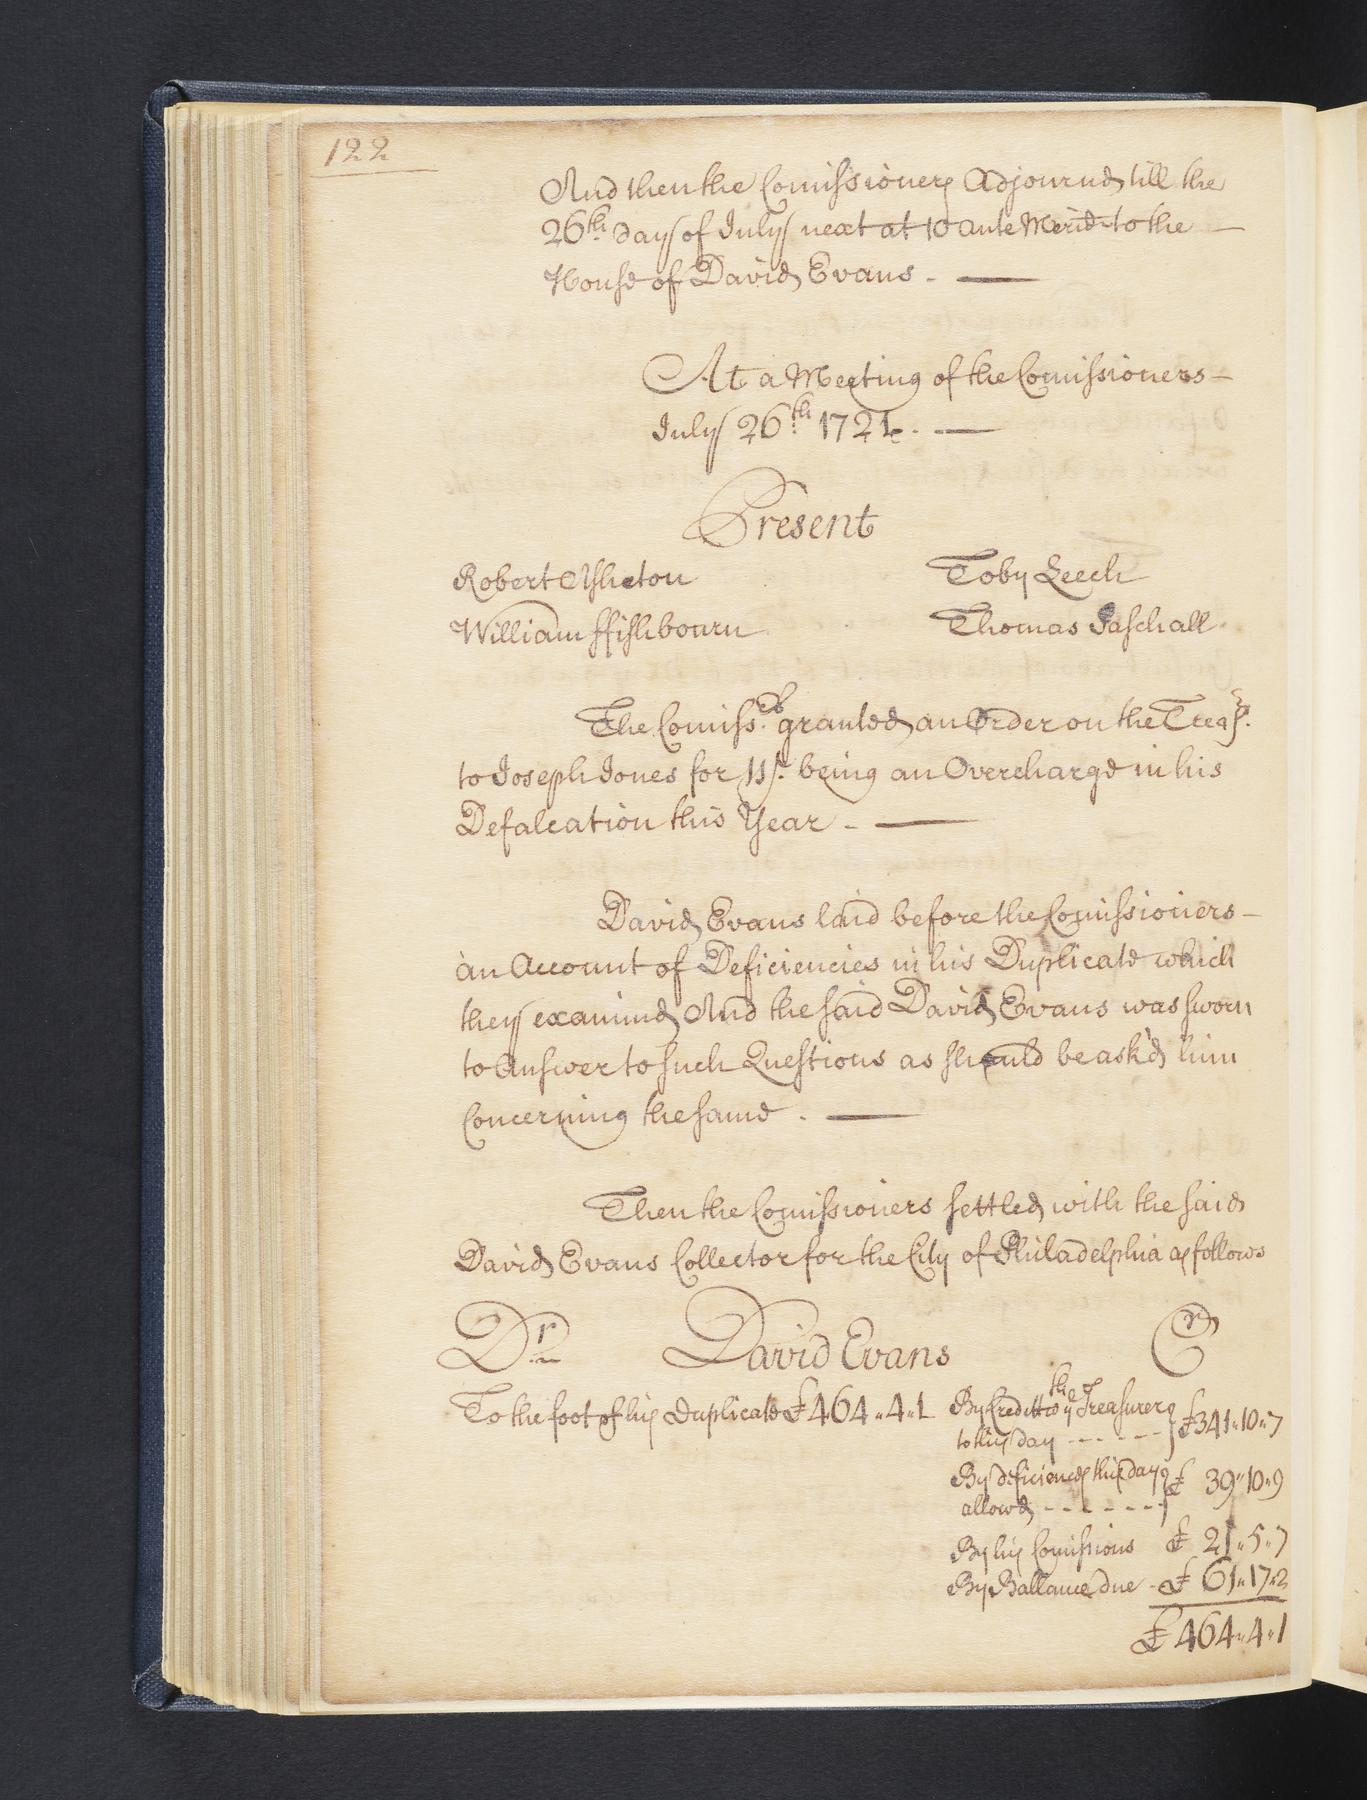 122
And then the Comissioners Adjournd till the
26th day of July next at 10 ante Merid to the
House of David Evans
At a Meeting of the Comissioners
July 26th 1721.
Present
Robert Assheton Toby Leech
William ffishbourn Thomas Paschall
The Comissrs granted an Order on the Treasr.
to Joseph Jones for 11s. being an Overcharge in his
Defalcation this Year
David Evans laid before the Comissioners
an Account of Deficiencies in his Duplicate which
they examind And the said David Evans was sworn
to Answer to such Questions as should be ask'd him
Concerning the same.
Then the Comissioners settled with the said
David Evans Collector for the City of Philadelphia as follows
Dr David Evans Cr
To the foot of his Duplicate £464..4..1
By Credit to the Treasurer
to this day £341..10..7
By deficiencys this day
allowd £ 39..10..9
By his Comissions £ 21..5..7
By Ballance due £ 61..17..2
£464..4..1